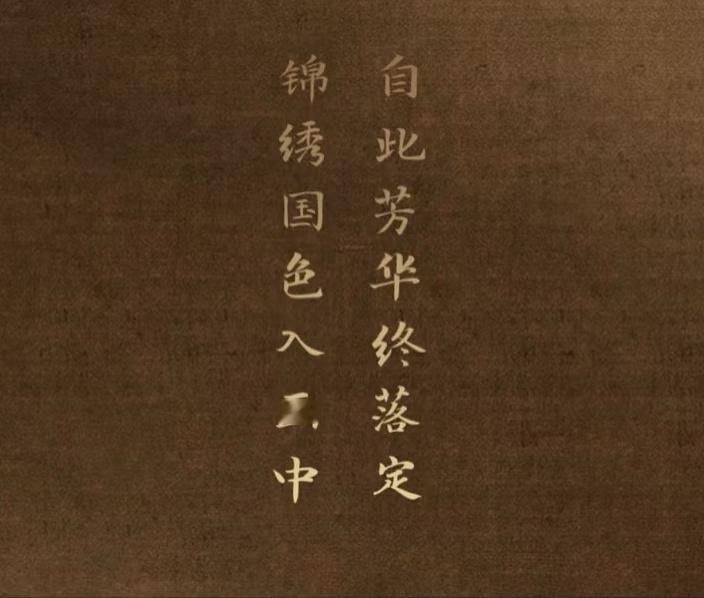 自此芳华终落定
锦绣国色入 中